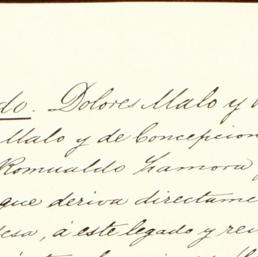 do. Dolores Malo y
Malo y de Concepcion
Romualdo Zamora
que deriva directame
esa, á este legado y re